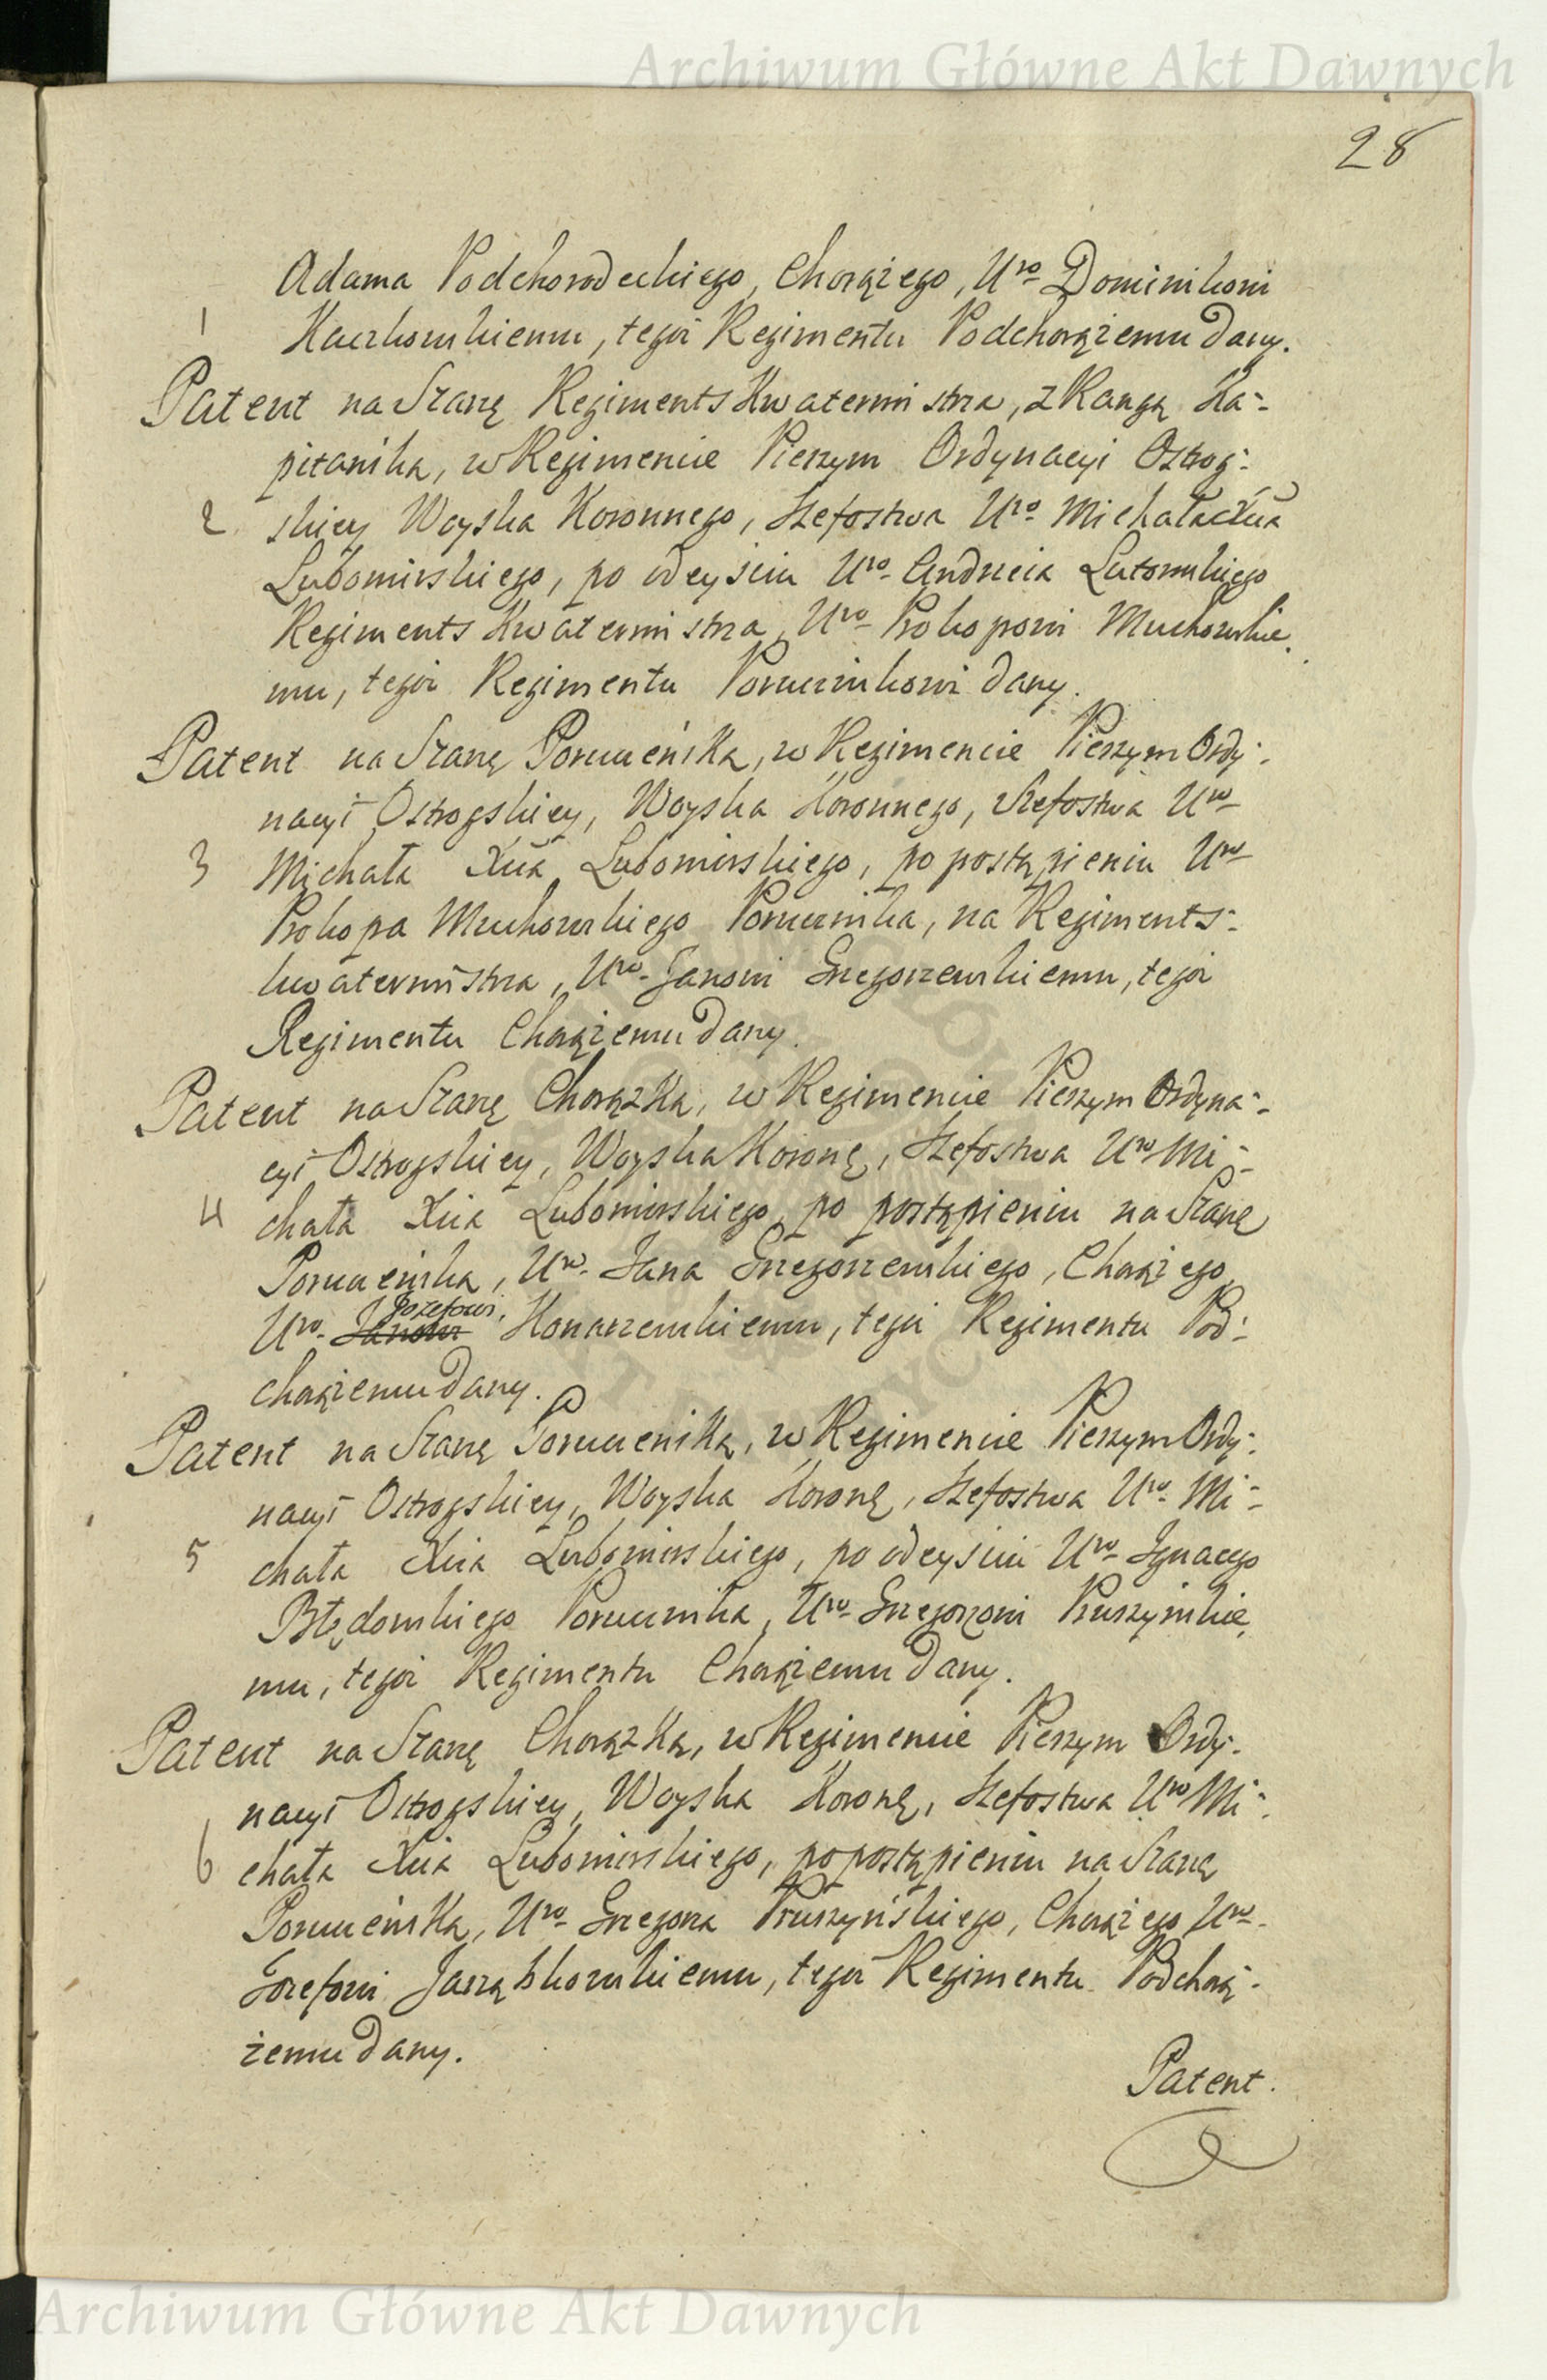 Archiwum Główne Akt Dawnych
28
Adama Podchorodeckiego, Chorążego, Uro Dominikowi
1 Kaczkowskiemu, tegoż Regimentu Podchorążemu Dany.
Patent na Szarżę Regiments Kwatermistrza, z Rangą Ka-
pitańską, w Regimencie Pieszym Ordynacyi Ostrog-
2 skiey Woyska Koronnego, Szefostwa Uro Michała Xcia
Lubomirskiego, po odeyściu Uro Andrzeia Lutomskiego
Regiments Kwatermistrza, Uro Prokopowi Muchowskie-
mu, tegoż Regimentu Porucznikowi Dany.
Patent na Szarżę Poruczeńską, w Regimencie Pieszym Ordy-
nacyi Ostrogskiey, Woyska Koronnego, Szefostwa Uro
3 Michała Xcia Lubomirskiego, po postąpieniu Uro
Prokopa Muchowskiego Porucznika, na Regiments-
kwatermistrza, Uro Janowi Grzegorzewskiemu, tegoż
Regimentu Chorążemu Dany.
Patent na Szarżę Chorązką, w Regimencie Pieszym Ordyna-
cyi Ostrogskiey, Woyska Koronę, Szefostwa Uro Mi-
4 chała Xcia Lubomirskiego, po postąpieniu na Szarżę
Poruczeńską, Uro Jana Grzegorzewskiego, Chorążego,
Uro Janowi Jozefowi Konarzewskiemu, tegoż Regimentu Pod-
chorążemu Dany.
Patent na Szarżę Poruczeńską, w Regimencie Pieszym Ordy-
nacyi Ostrogskiey, Woyska Koronę, Szefostwa Uro Mi-
5 chała Xcia Lubomirskiego, po odeyściu Uro Ignacego
Błędowskiego Porucznika, Uro Grzegorzowi Pruszyńskie-
mu, tegoż Regimentu Chorążemu Dany.
Patent na Szarżę Chorązką, w Regimencie Pieszym Ordy-
nacyi Ostrogskiey, Woyska Koronę, Szefostwa Uro Mi-
6 chała Xcia Lubomirskiego, po postąpieniu na Szarżę
Poruczeńską, Uro Grzegorza Pruszyńskiego, Chorążego, Uro
Jozefowi Jarząbkowskiemu, tegoż Regimentu Podchorą-
żemu Dany.
Patent.
Archiwum Główne Akt Dawnych